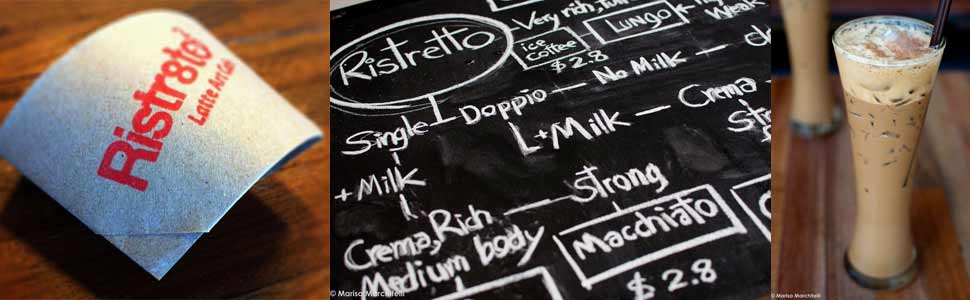 Ristr8to
Latte Art Cafe
Very rich,
Ristretto
ice coffee
$ 2.8
LUNGO
Weak
No Milk
Single
Doppio
+Milk
Crema
+ Milk
Strong
Crema, Rich
Medium body
Macchiato
$ 2.8
© Marisa Marchitelli
© Marisa Marchitelli